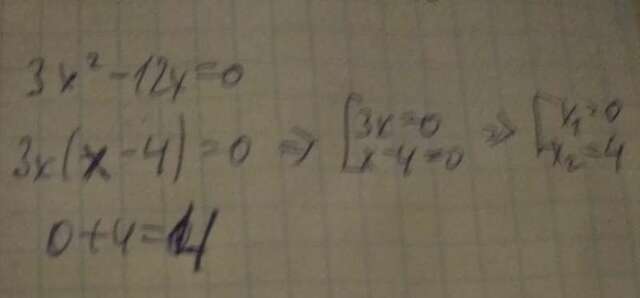 3x² - 12x = 0
3x(x - 4) = 0 ⇒ [3x = 0 x - 4 = 0 ⇒ [x₁ = 0 x₂ = 4
0 + 4 = 4